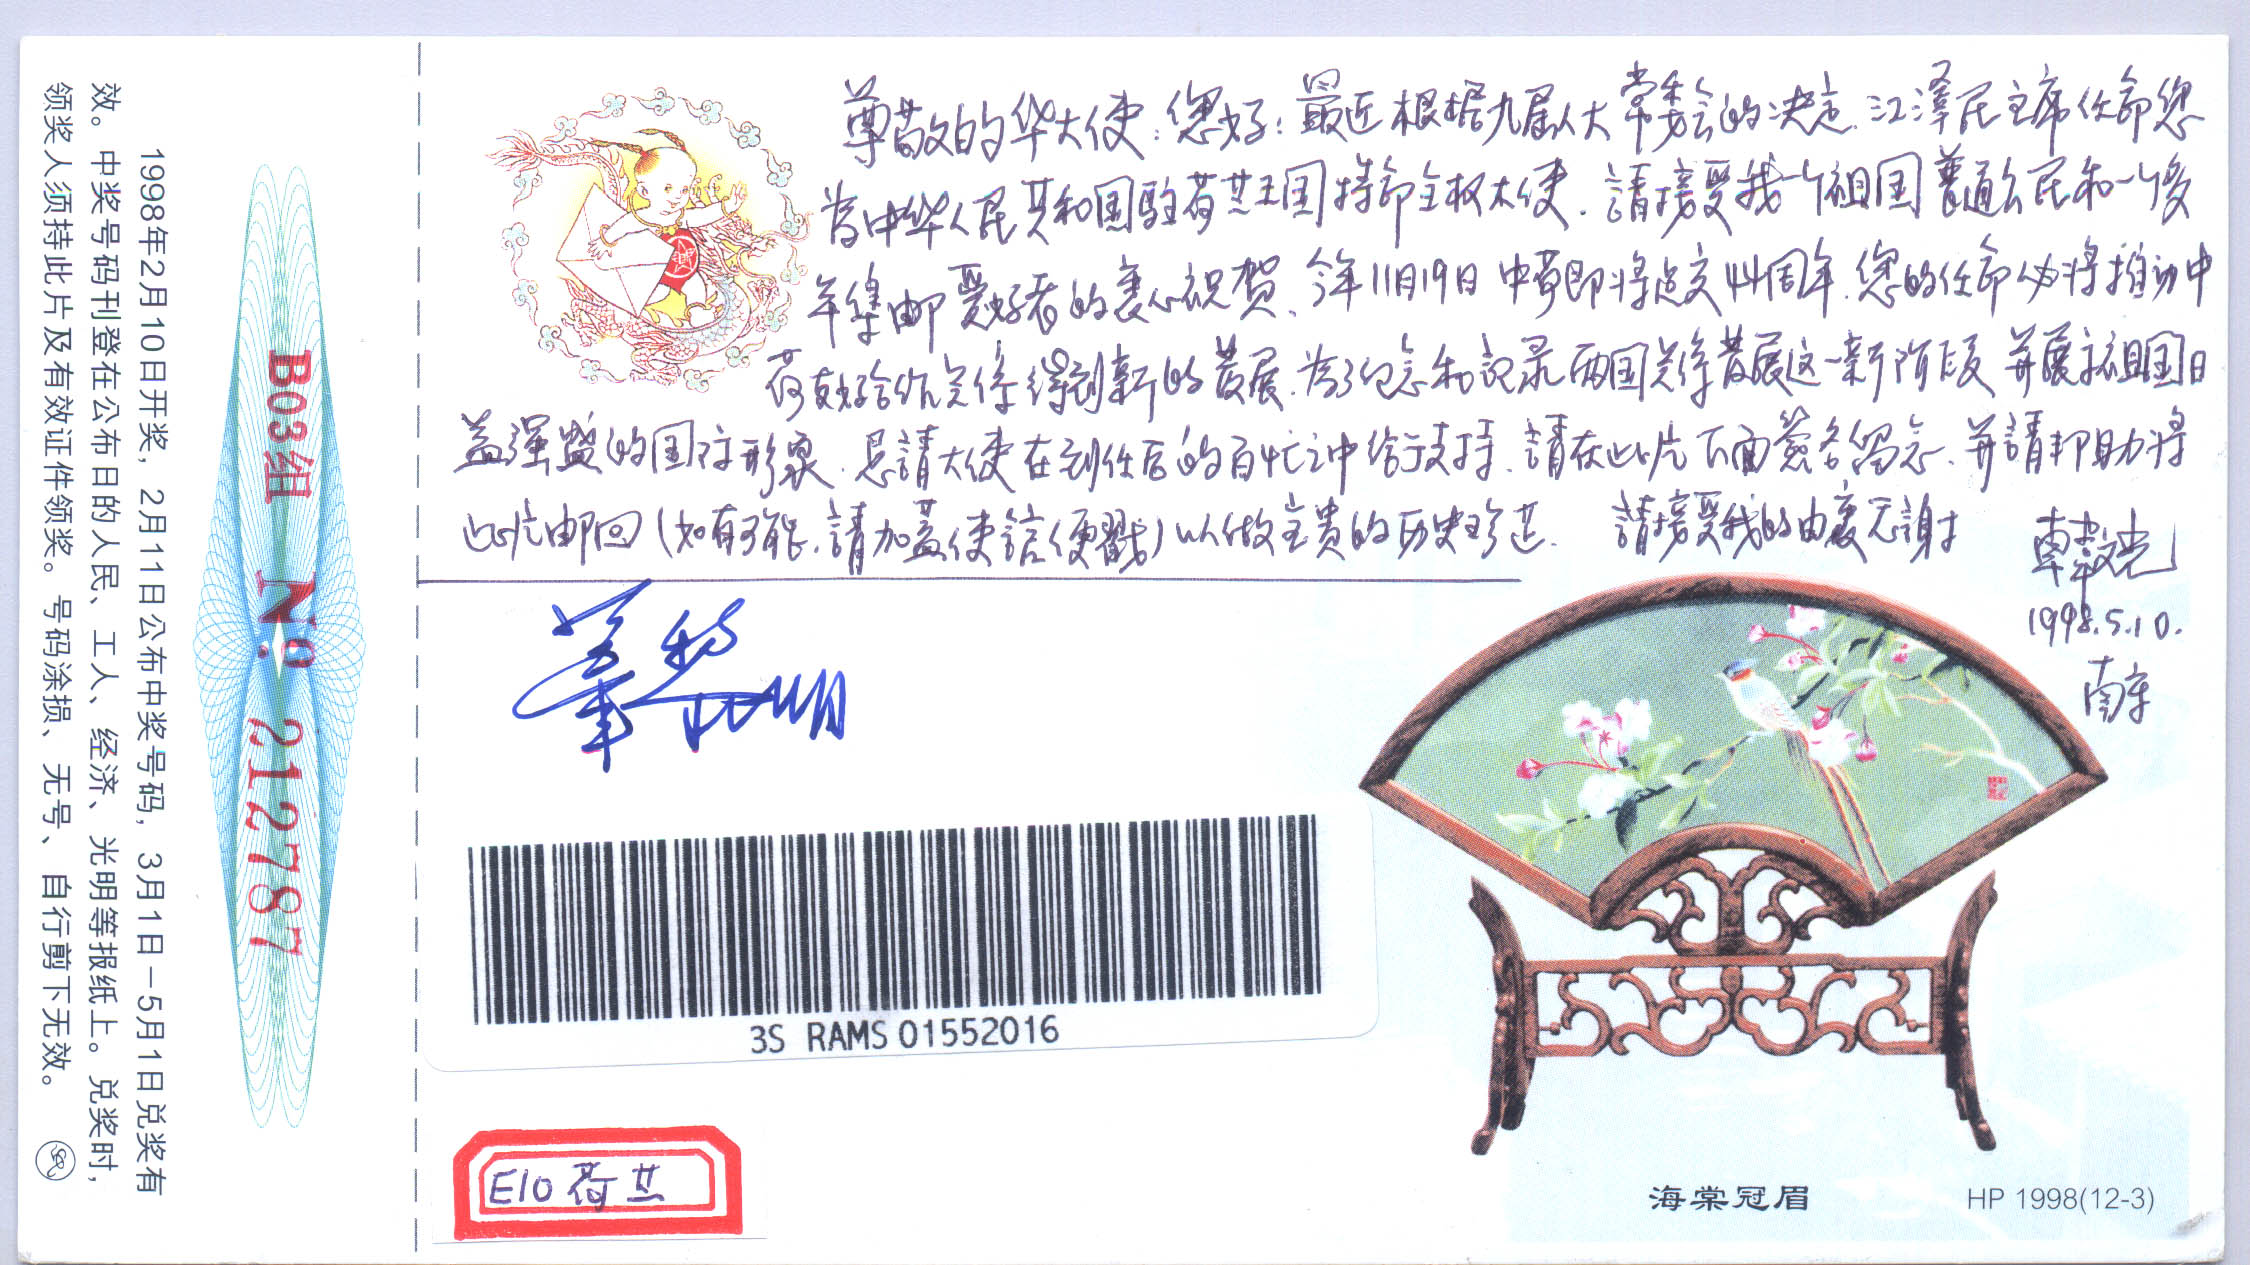 尊敬的华大使：您好：最近根据九届人大常委会的决定，江泽民主席任命您
为中华人民共和国駐荷兰王国特命全权大使，請接受我一个祖国普通公民和一个多
年集邮爱好者的衷心祝贺，今年11月19日中荷即将建交44周年，您的任命必将推动中
荷友好合作关系得到新的发展，为了纪念和記录两国关系发展这一新阶段并展示祖国日
益强盛的国际形象，恳請大使在到任后的百忙之中给予支持，請在此片下面簽名留念，并請帮助将
此片邮回（如有可能，請加盖使館便戳）以做宝贵的历史珍芷，請接受我的由衷无謝！
韓
1998.5.10.
南京
华
明
3S RAMS 01552016
E10 荷兰
海棠冠眉
HP 1998(12-3)
1998年2月10日开奖，2月11日公布中奖号码，3月1日－5月1日兑奖有
效。中奖号码刊登在公布日的人民、工人、经济、光明等报纸上。兑奖时，
领奖人须持此片及有效证件领奖。号码涂损、无号、自行剪下无效。
B03组 № 212787